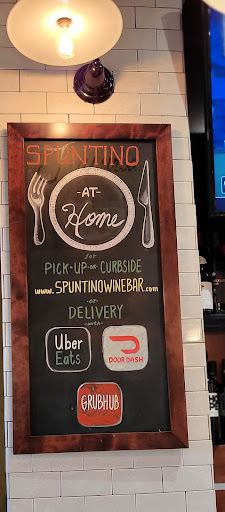 SPUNTINO
-AT-
Home
for
PICK-UP-OR-CURBSIDE
www.SPUNTINOWINEBAR.com
-or-
DELIVERY
-with-
Uber
Eats
DOORDASH
GRUBHUB